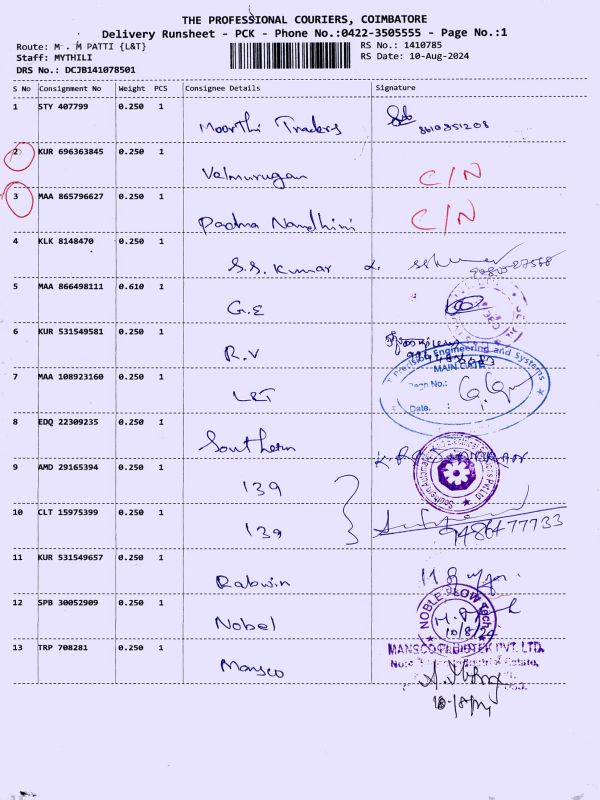 THE PROFESSIONAL COURIERS, COIMBATORE
Delivery Runsheet - PCK - Phone No.:0422-3505555 - Page No.:1
Route: M . M PATTI {L&T}
RS No.: 1410785
Staff: MYTHILI
RS Date: 10-Aug-2024
DRS No.: DCJB141078501
S No Consignment No Weight PCS Consignee Details Signature
1 STY 407799 0.250 1
Moorthi Traders 8610351208
2 KUR 696363845 0.250 1
Velmurugan C/N
3 MAA 865796627 0.250 1
Padma Nandhini C/N
4 KLK 8148470 0.250 1
S.S. Kumar
5 MAA 866498111 0.610 1
G.E
6 KUR 531549581 0.250 1
R.V
Precision Engineering and Systems
MAIN GATE
7 MAA 108923160 0.250 1
L&T
No.:
Date. :
8 EDQ 22309235 0.250 1
Southern
9 AMD 29165394 0.250 1
139
10 CLT 15975399 0.250 1
139
11 KUR 531549657 0.250 1
Rabwin
12 SPB 30052909 0.250 1
Nobel
NOBLE FLOW Tech
10/8/24
13 TRP 708281 0.250 1
Mansco
PVT. LTD.
Estate,